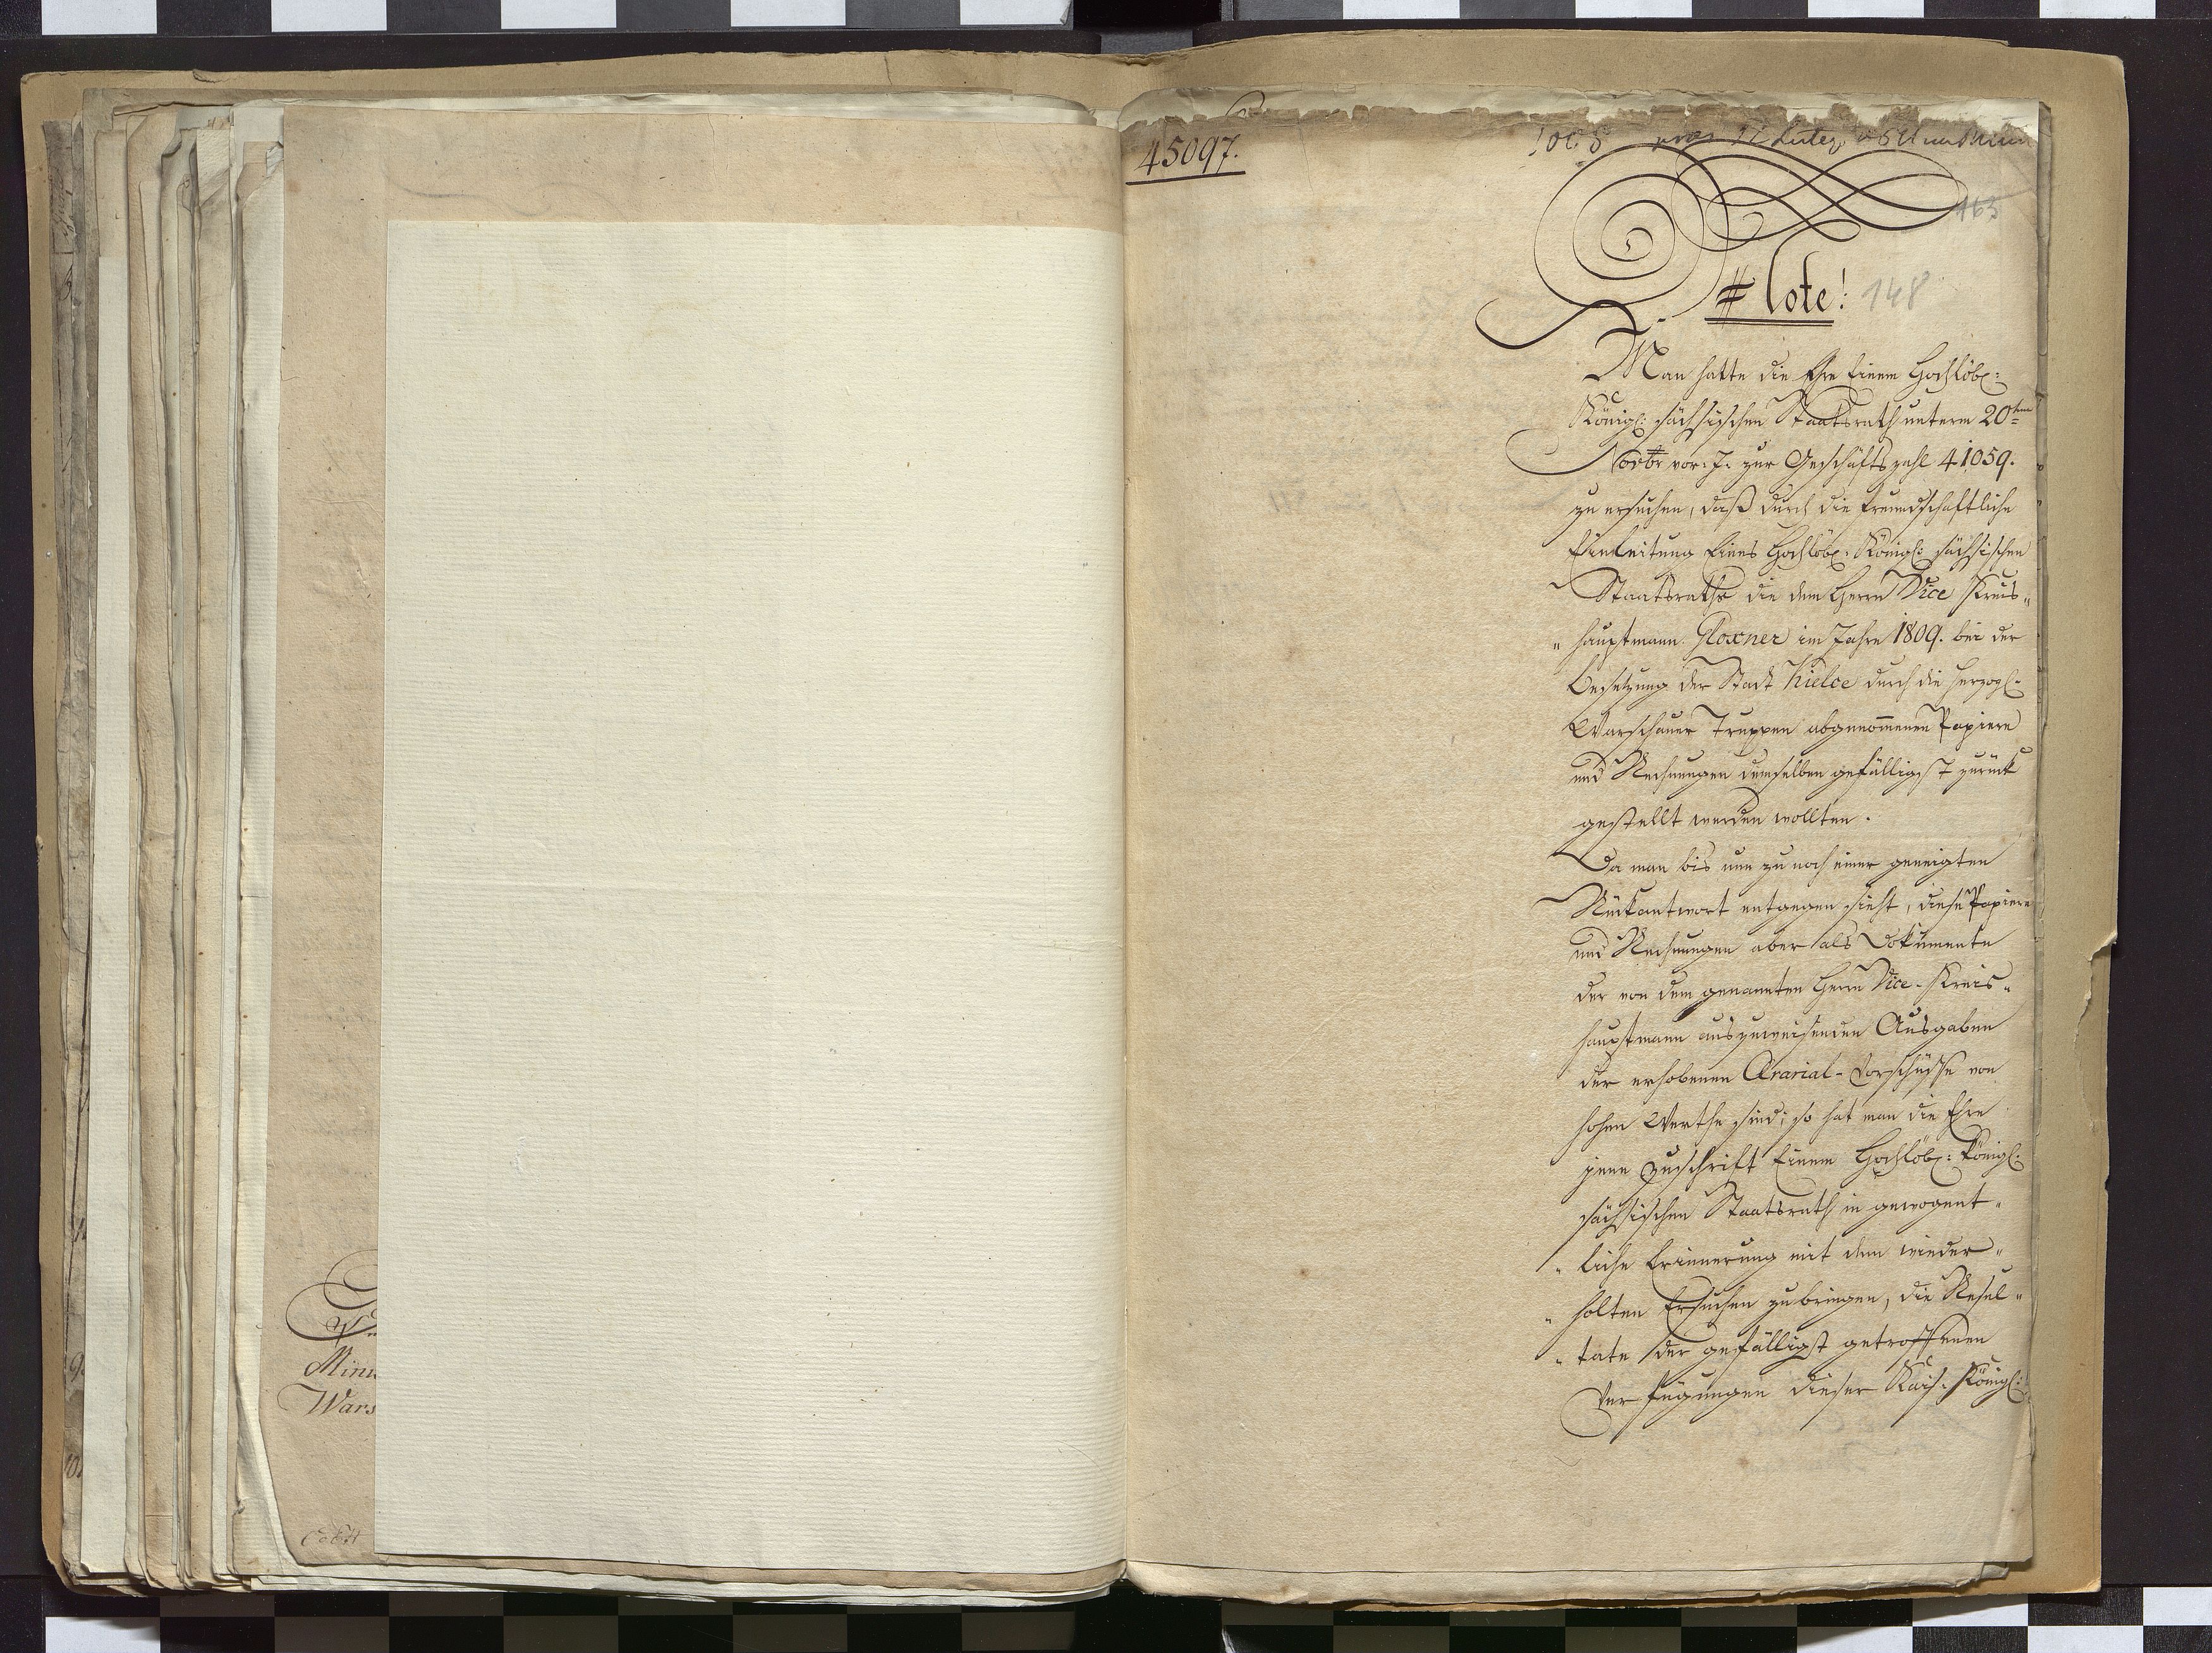 45097.
163
Note!
148
Man hatte die Ehre Einem Hochlöbl:
Königl: sächsischen Staatsrath unterm 20ten
Novbr vor: J. zur Geschäftszahl 41059.
zu ersuchen, daß durch die freundschaftliche
Einleitung Eines Hochlöbl: Königl: sächsischen
Staatsraths die dem Herrn Vice Kreis„
„hauptmann Gloxner im Jahre 1809. bei der
Besetzung der Stadt Kielce durch die herzogl:
Warschauer Truppen abgenommenen Papiere
und Rechnungen demselben gefälligst zurück
gestellt werden wollten.
Da man bis nun zu noch einer geneigten
Rückantwort entgegen sieht, diese Papiere
und Rechnungen aber als Dokumente
der von dem genannten Herrn Vice-Kreis„
hauptmann auszuweisenden Ausgaben
der erhobenen Ærarial-Vorschüsse von
hohem Werthe sind; so hat man die Ehre
jene Zuschrift Einem Hochlöbl: Königl:
sächsischen Staatsrath in gewogent„
„liche Erinnerung mit dem wieder„
„holten Ersuchen zu bringen, die Resul„
„tate der gefälligst getroffenen
Verfügungen dieser Kais: Königl:
Minn
Wars